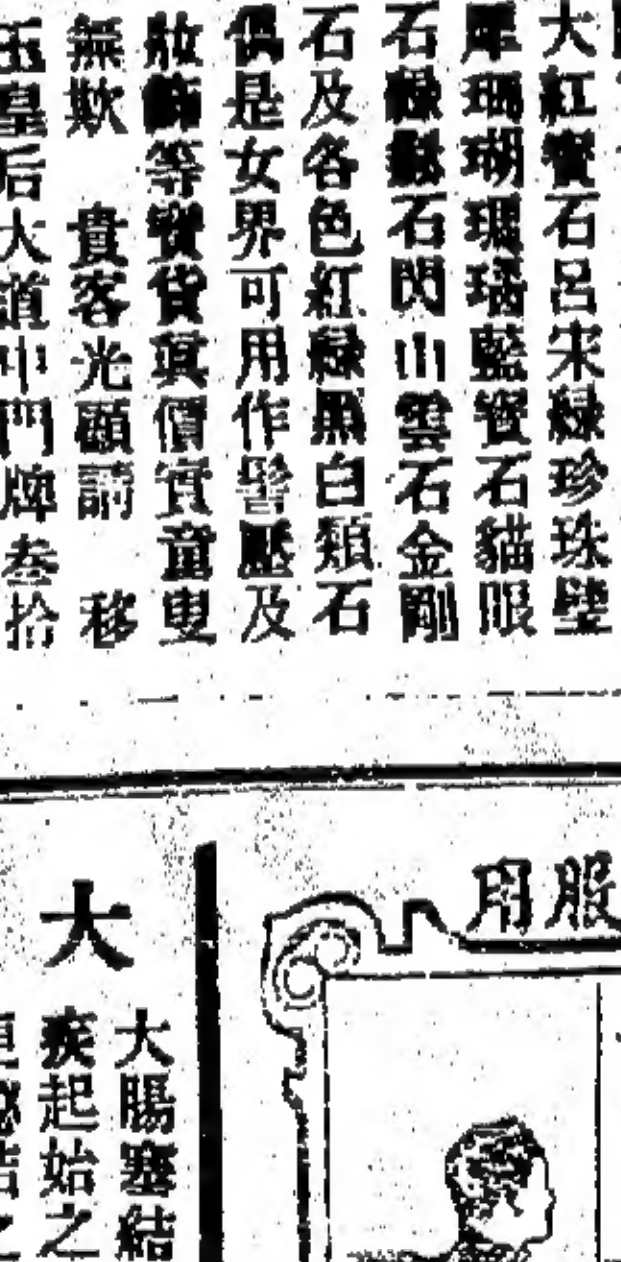 大紅寶石呂宋綠珍珠璧
犀珊瑚瑪瑙藍寶石貓眼
石綠鬆石閃山雲石金剛
石及各色紅綠黑白類石
偶是女界可用作髻壓及
妝飾等寶貨真價實童叟
無欺 貴客光顧請 移
玉皇后大道中門牌叁拾
服用
大
大腸塞結
疾起始之